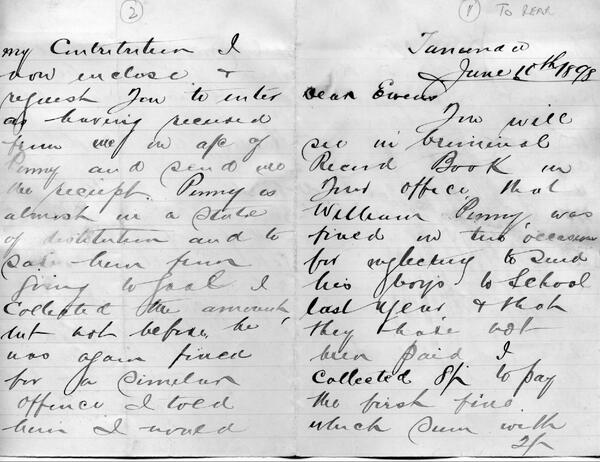 (1) TO REAR
Tanunda
June 10th 1898
Dear Ewens
You will
see in Criminal
Record Book in
Your office that
William Penny was
fined on two occasions
for neglecting to send
his boys to School
last Year, & that
they have not
been paid I
Collected 8/- to pay
the first fine.
which sum with
2/-
(2)
my Contribution I
now enclose &
request You to enter
as having received
from me on a/c of
Penny and send me
the receipt. Penny is
almost in a state
of distitution and to
save him from
going to Gaol I
Collected the amount
but not before he
was again fined
for a similar
offence I told
him I would